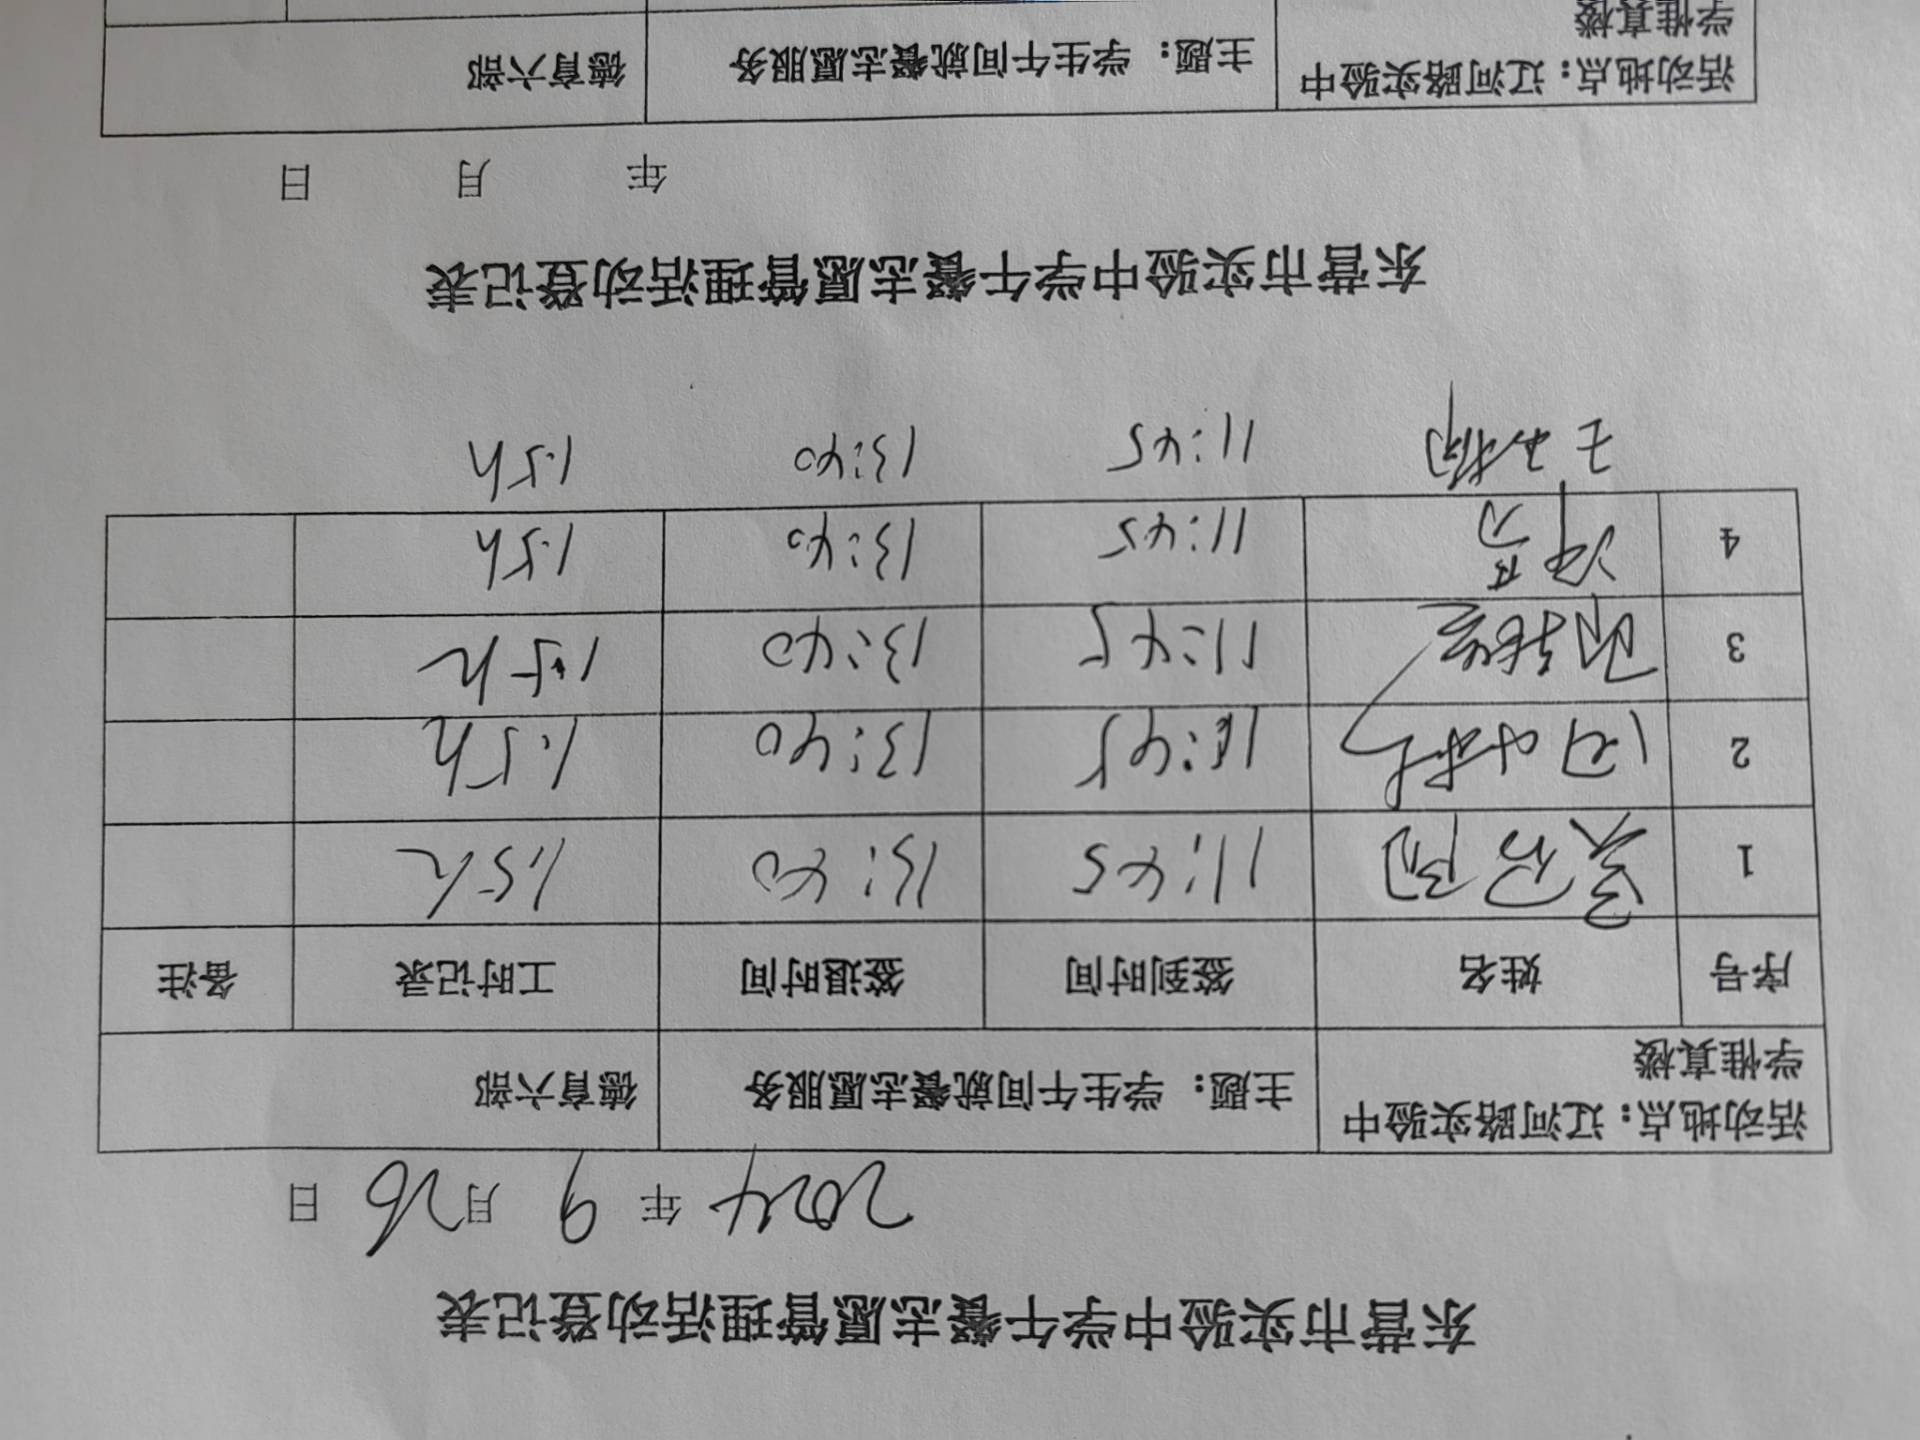 东营市实验中学午餐志愿管理活动登记表
2024 年 9 月 26 日
活动地点：辽河路实验中学惟真楼 主题：学生午间就餐志愿服务 德育六部
序号 姓名 签到时间 签退时间 工时记录 备注
1 11:45 13:40 1.5h
2 11:45 13:40 1.5h
3 11:45 13:40 1.5h
4 11:45 13:40 1.5h
11:45 13:40 1.5h
东营市实验中学午餐志愿管理活动登记表
年 月 日
活动地点：辽河路实验中学惟真楼 主题：学生午间就餐志愿服务 德育六部